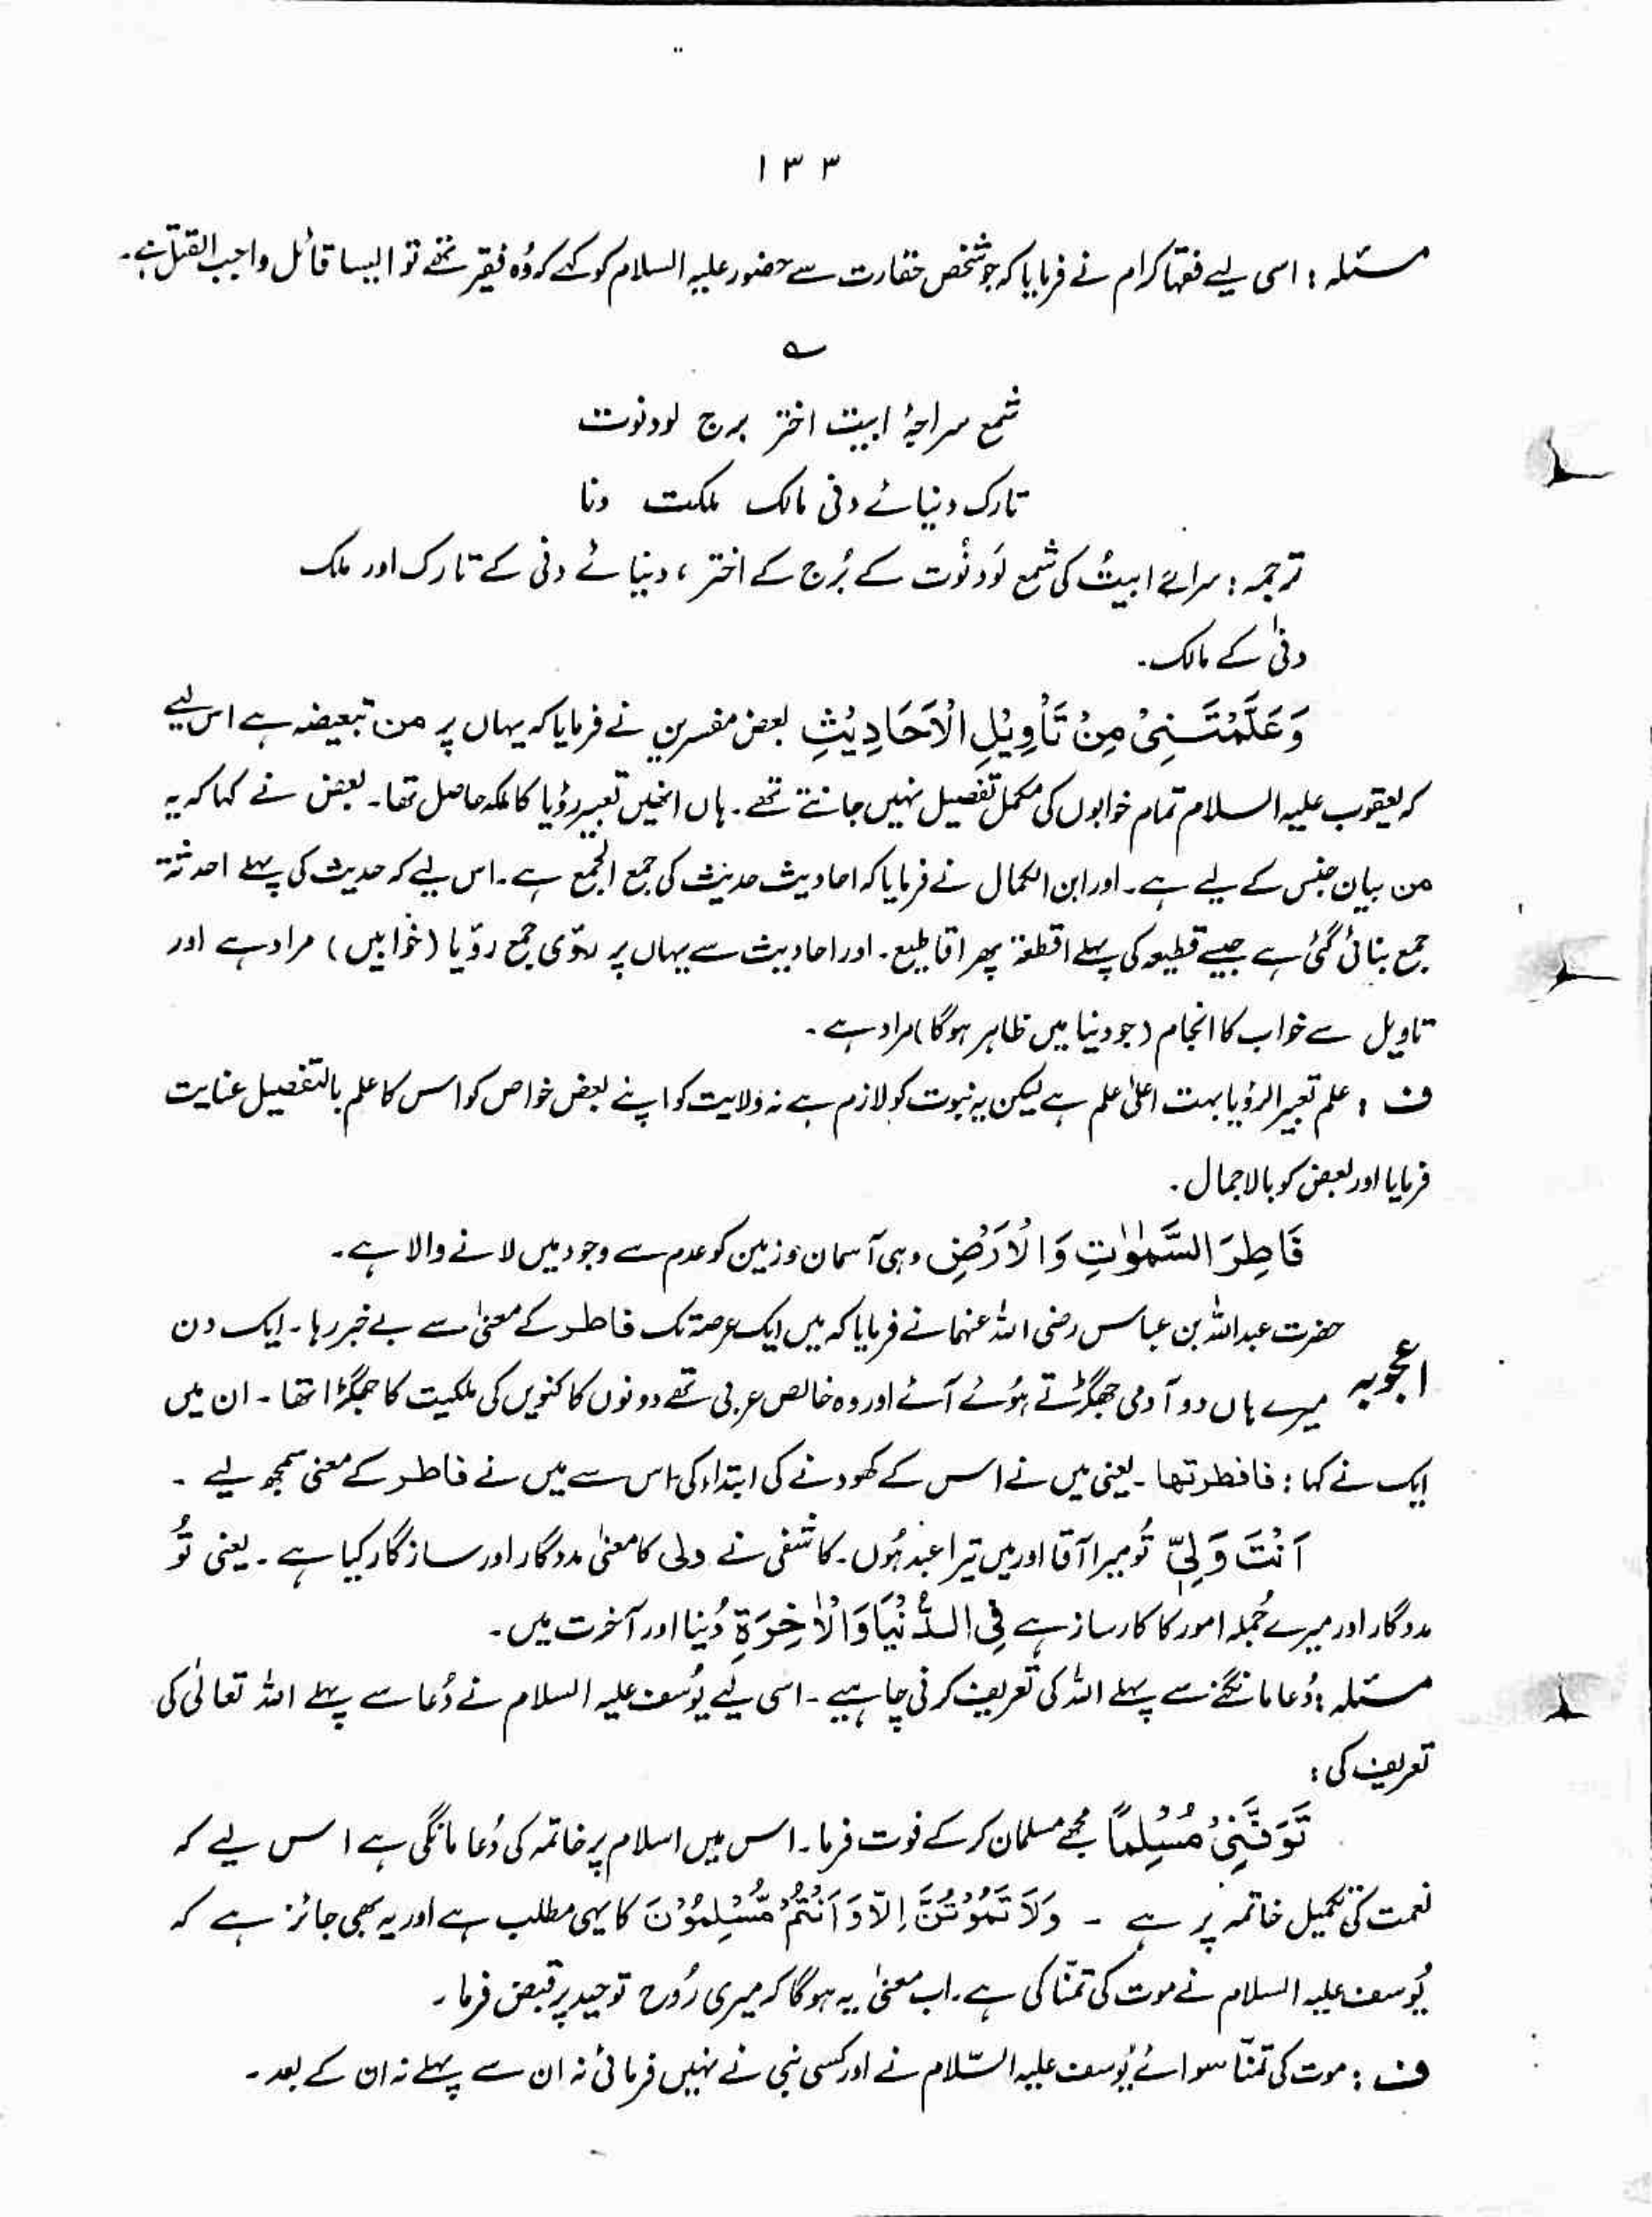 ۱۳۳
مسئلہ : اسی لیے فقہا کرام نے فرمایا کہ جو شخص حقارت سے حضور علیہ السلام کو کہے کہ وُہ فقیر تھے تو ایسا قائل واجب القتل ہے۔
؎
شمع سراجۂ ابیت اختر برج لودنوت
تارک دنیائے دنی مالک ملکت دنا
ترجمہ : سرائے ابیتُ کی شمع لَودنُوت کے بُرج کے اختر ، دنیائے دنی کے تارک اور ملک
دنیٰ کے مالک۔
وَعَلَّمْتَنِیْ مِنْ تَأْوِیْلِ الْاَحَادِیْثِ بعض مفسرین نے فرمایا کہ یہاں پر من تبعیضہ ہے اس لیے
کہ یعقوب علیہ السلام تمام خوابوں کی مکمل تفصیل نہیں جانتے تھے۔ ہاں انھیں تعبیر رؤیا کا ملکہ حاصل تھا۔ بعض نے کہا کہ یہ
من بیان جنس کے لیے ہے۔ اور ابن الکمال نے فرمایا کہ احادیث حدیث کی جمع الجمع ہے۔ اس لیے کہ حدیث کی پہلے احدثۃ
جمع بنائی گئی ہے جیسے قطیعہ کی پہلے اقطعۃ پھر اقاطیع۔ اور احادیث سے یہاں پر روّی جمع روّیا (خوابیں) مراد ہے اور
تاویل سے خواب کا انجام (جو دنیا میں ظاہر ہوگا) مراد ہے۔
ف : علم تعبیر الرؤیا بہت اعلیٰ علم ہے لیکن یہ نبوت کو لازم ہے نہ ولایت کو اپنے بعض خواص کو اس کا علم بالتفصیل عنایت
فرمایا اور بعض کو بالاجمال۔
فَاطِرَ السَّمٰوٰتِ وَالْاَرْضِ وہی آسمان وزمین کو عدم سے وجود میں لانے والا ہے۔
حضرت عبداللہ بن عباس رضی اللہ عنہما نے فرمایا کہ میں ایک عرصہ تک فاطر کے معنیٰ سے بے خبر رہا۔ ایک دن
اعجوبہ میرے ہاں دو آدمی جھگڑتے ہوُئے آئے اور وہ خالص عربی تھے دونوں کا کنویں کی ملکیت کا جھگڑا تھا۔ ان میں
ایک نے کہا : فافطرتھا۔ یعنی میں نے اس کے کھودنے کی ابتداء کی اس سے میں نے فاطر کے معنی سمجھ لیے ۔
اَنْتَ وَلِیّٖ تُو میرا آقا اور میں تیرا عبد ہُوں۔ کاشفی نے ولی کا معنیٰ مددگار اور سازگار کیا ہے۔ یعنی تُو
مددگار اور میرے جُملہ امور کا کارساز ہے فِی الدُّنْیَا وَالْاٰخِرَةِ دُنیا اور آخرت میں۔
مسئلہ : دُعا مانگنے سے پہلے اللہ کی تعریف کرنی چاہیے ۔ اسی لیے یُوسف علیہ السلام نے دُعا سے پہلے اللہ تعالیٰ کی
تعریف کی :
تَوَفَّنِیْ مُسْلِمًا مجھے مسلمان کر کے فوت فرما۔ اس میں اسلام پر خاتمہ کی دُعا مانگی ہے اس لیے کہ
نعمت کی تکمیل خاتمہ پر ہے ۔ وَلَا تَمُوْتُنَّ اِلَّا وَاَنْتُمْ مُّسْلِمُوْنَ کا یہی مطلب ہے اور یہ بھی جائز ہے کہ
یُوسف علیہ السلام نے موت کی تمنّا کی ہے۔ اب معنیٰ یہ ہوگا کہ میری رُوح توحید پر قبض فرما۔
ف : موت کی تمنّا سوائے یُوسف علیہ السّلام نے اور کسی نبی نے نہیں فرمائی نہ ان سے پہلے نہ ان کے بعد۔